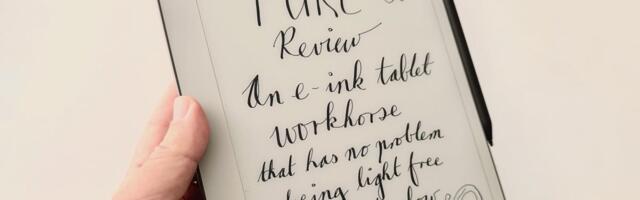 PURE
Review
An e-ink tablet
workhorse
that has no problem
being light free